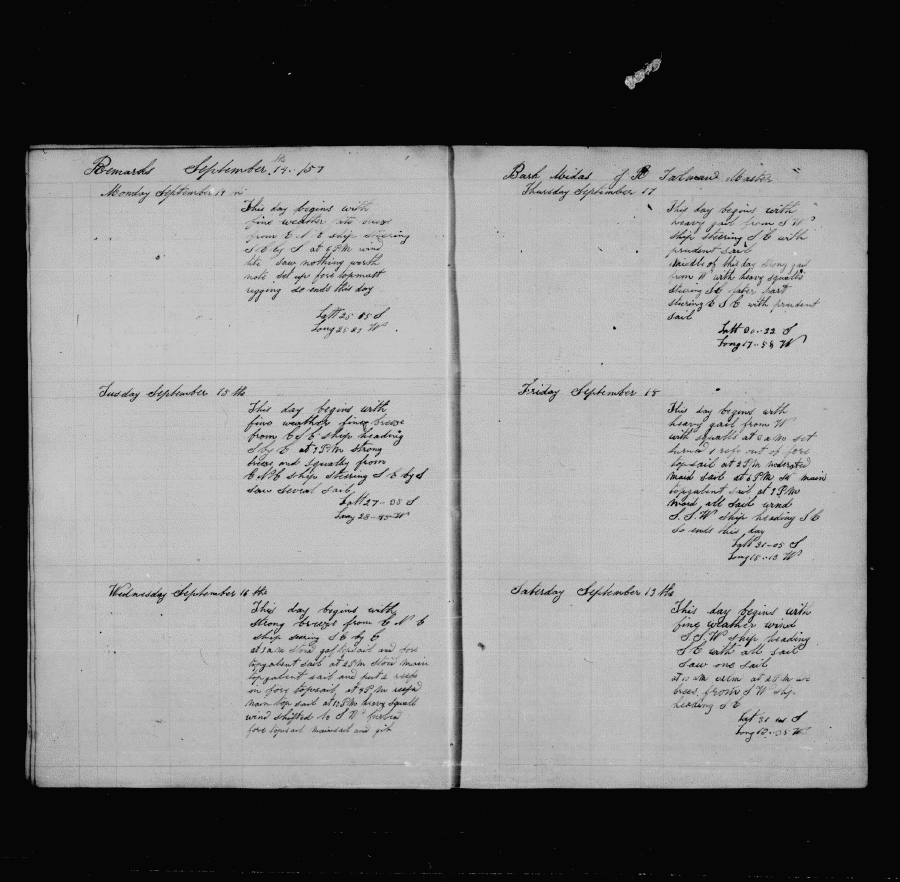 Remarks September 14th /57
Monday September 14
This day begins with
fine weather
from E N E ship steering
S E by S at 9 P M wind
saw nothing worth
note set up fore topmast
rigging so ends this day
Latt 25-05 S
Long 25
Tuesday September 15 th
This day begins with
fine weather fine breeze
from E S E ship heading
S by E at 7 P M strong
breeze and squally from
E N E ship steering S E by S
saw several sail
Latt 27-05 S
Long 23 W
Wednesday September 16 th
This day begins with
strong breeze from E N E
ship steering S E by E
at 3 a m stowd gaf topsail and fore
topgalent sail at 2 P M stowd main
topgalent sail and put 2 reefs
in fore topsail at 4 P M reefd
main top sail at 10 P M heavy squall
wind shifted to S W furled
fore topsail mainsail and gib
Bark Midas of Talman Master
Thursday September 17
This day begins with
heavy gail from S W
ship steering S E with
prudent sail
Middle of this day strong gail
from W with heavy squalls
steering S E later part
steering E S E with prudent
sail
Latt 30-22 S
Long 17-58 W
Friday September 18
This day begins with
heavy gail from W
with squalls at 8 a m set
turned 1 refe out of fore
topsail at 2 P M moderated
maid sail at 6 P M set main
topgalent sail at 7 P M
maid all sail wind
S.S.W ship heading S E
So ends this day
Latt 31-05 S
Long 15-13 W
Saturday September 19 th
This day begins with
fine weather wind
S.S.W ship heading
S E with all sail
saw one sail
at 10 a m calm at 2 P M
breeze from S W ship
heading S E
Latt 31 S
Long 13-35 W